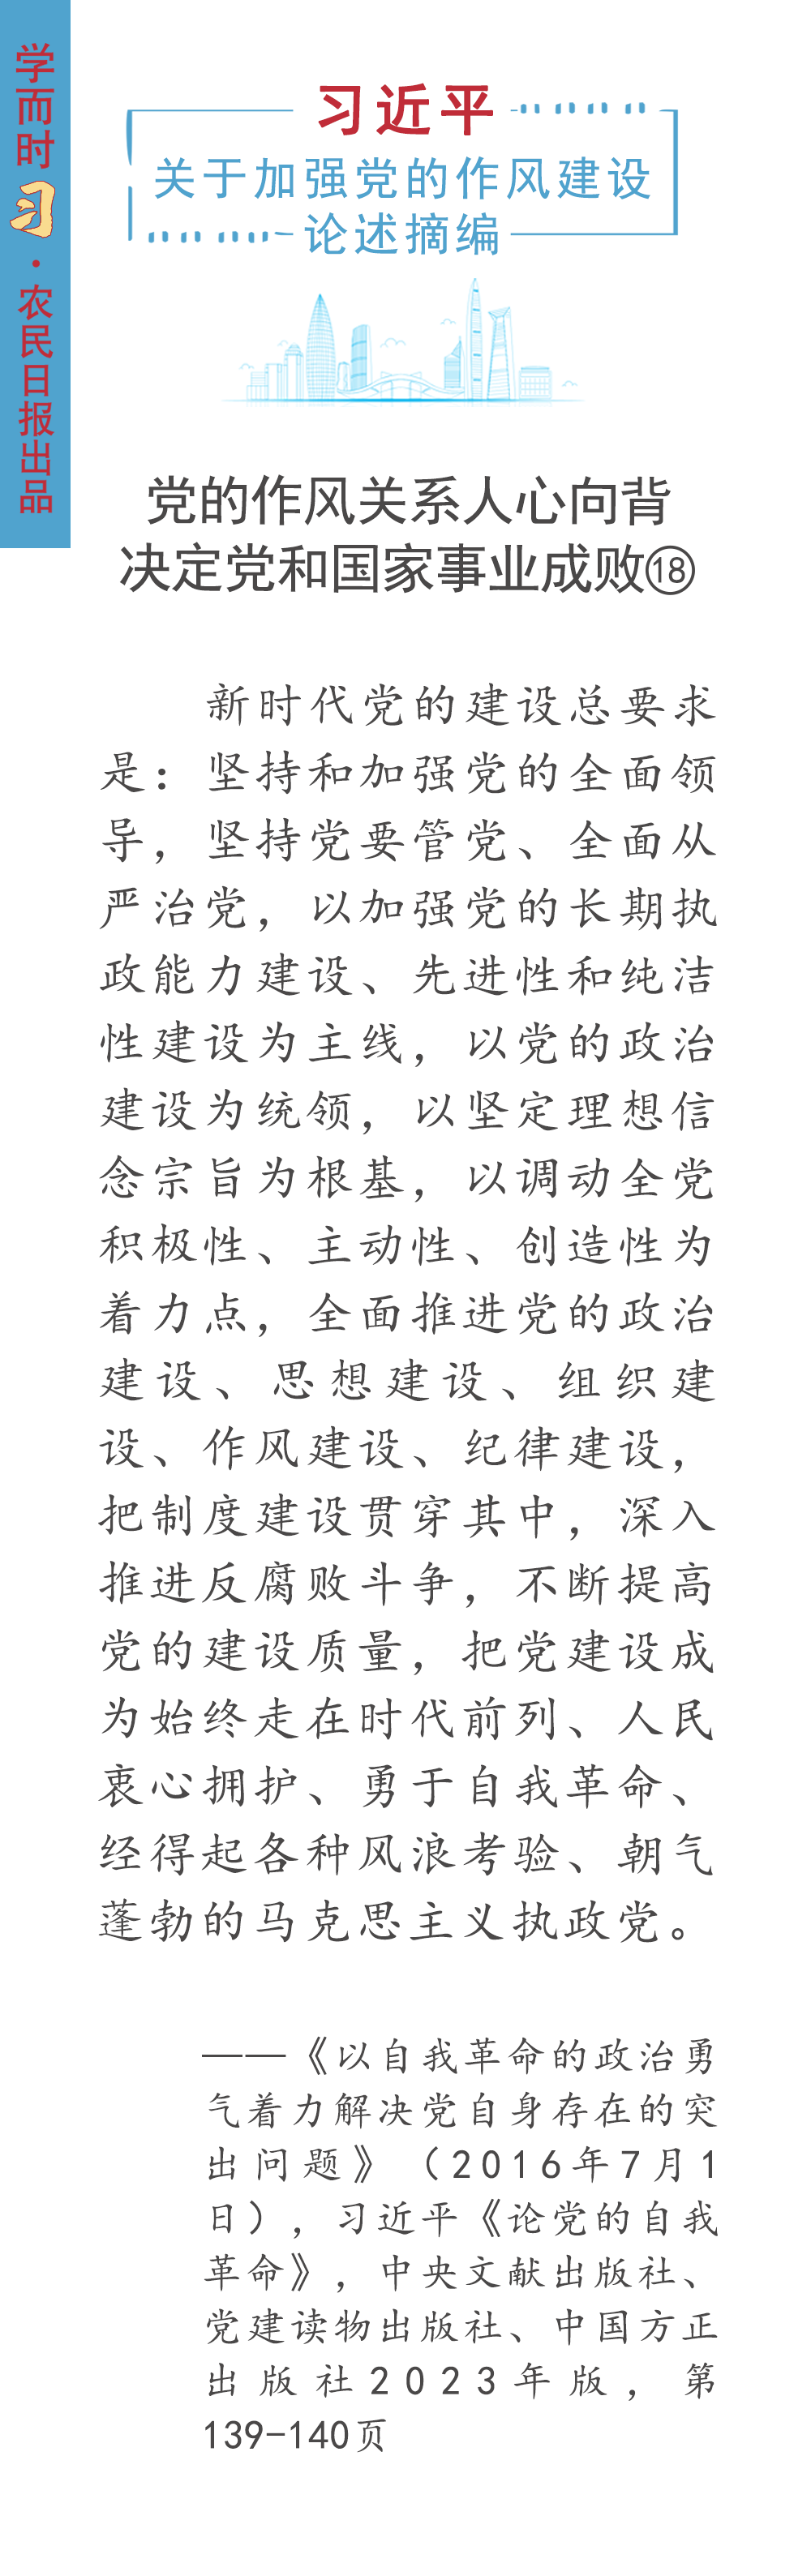 学而时习·农民日报出品
习近平
关于加强党的作风建设
论述摘编
党的作风关系人心向背
决定党和国家事业成败⑱
新时代党的建设总要求
是：坚持和加强党的全面领
导，坚持党要管党、全面从
严治党，以加强党的长期执
政能力建设、先进性和纯洁
性建设为主线，以党的政治
建设为统领，以坚定理想信
念宗旨为根基，以调动全党
积极性、主动性、创造性为
着力点，全面推进党的政治
建设、思想建设、组织建
设、作风建设、纪律建设，
把制度建设贯穿其中，深入
推进反腐败斗争，不断提高
党的建设质量，把党建设成
为始终走在时代前列、人民
衷心拥护、勇于自我革命、
经得起各种风浪考验、朝气
蓬勃的马克思主义执政党。
——《以自我革命的政治勇
气着力解决党自身存在的突
出问题》（2016年7月1
日），习近平《论党的自我
革命》，中央文献出版社、
党建读物出版社、中国方正
出版社2023年版，第
139-140页